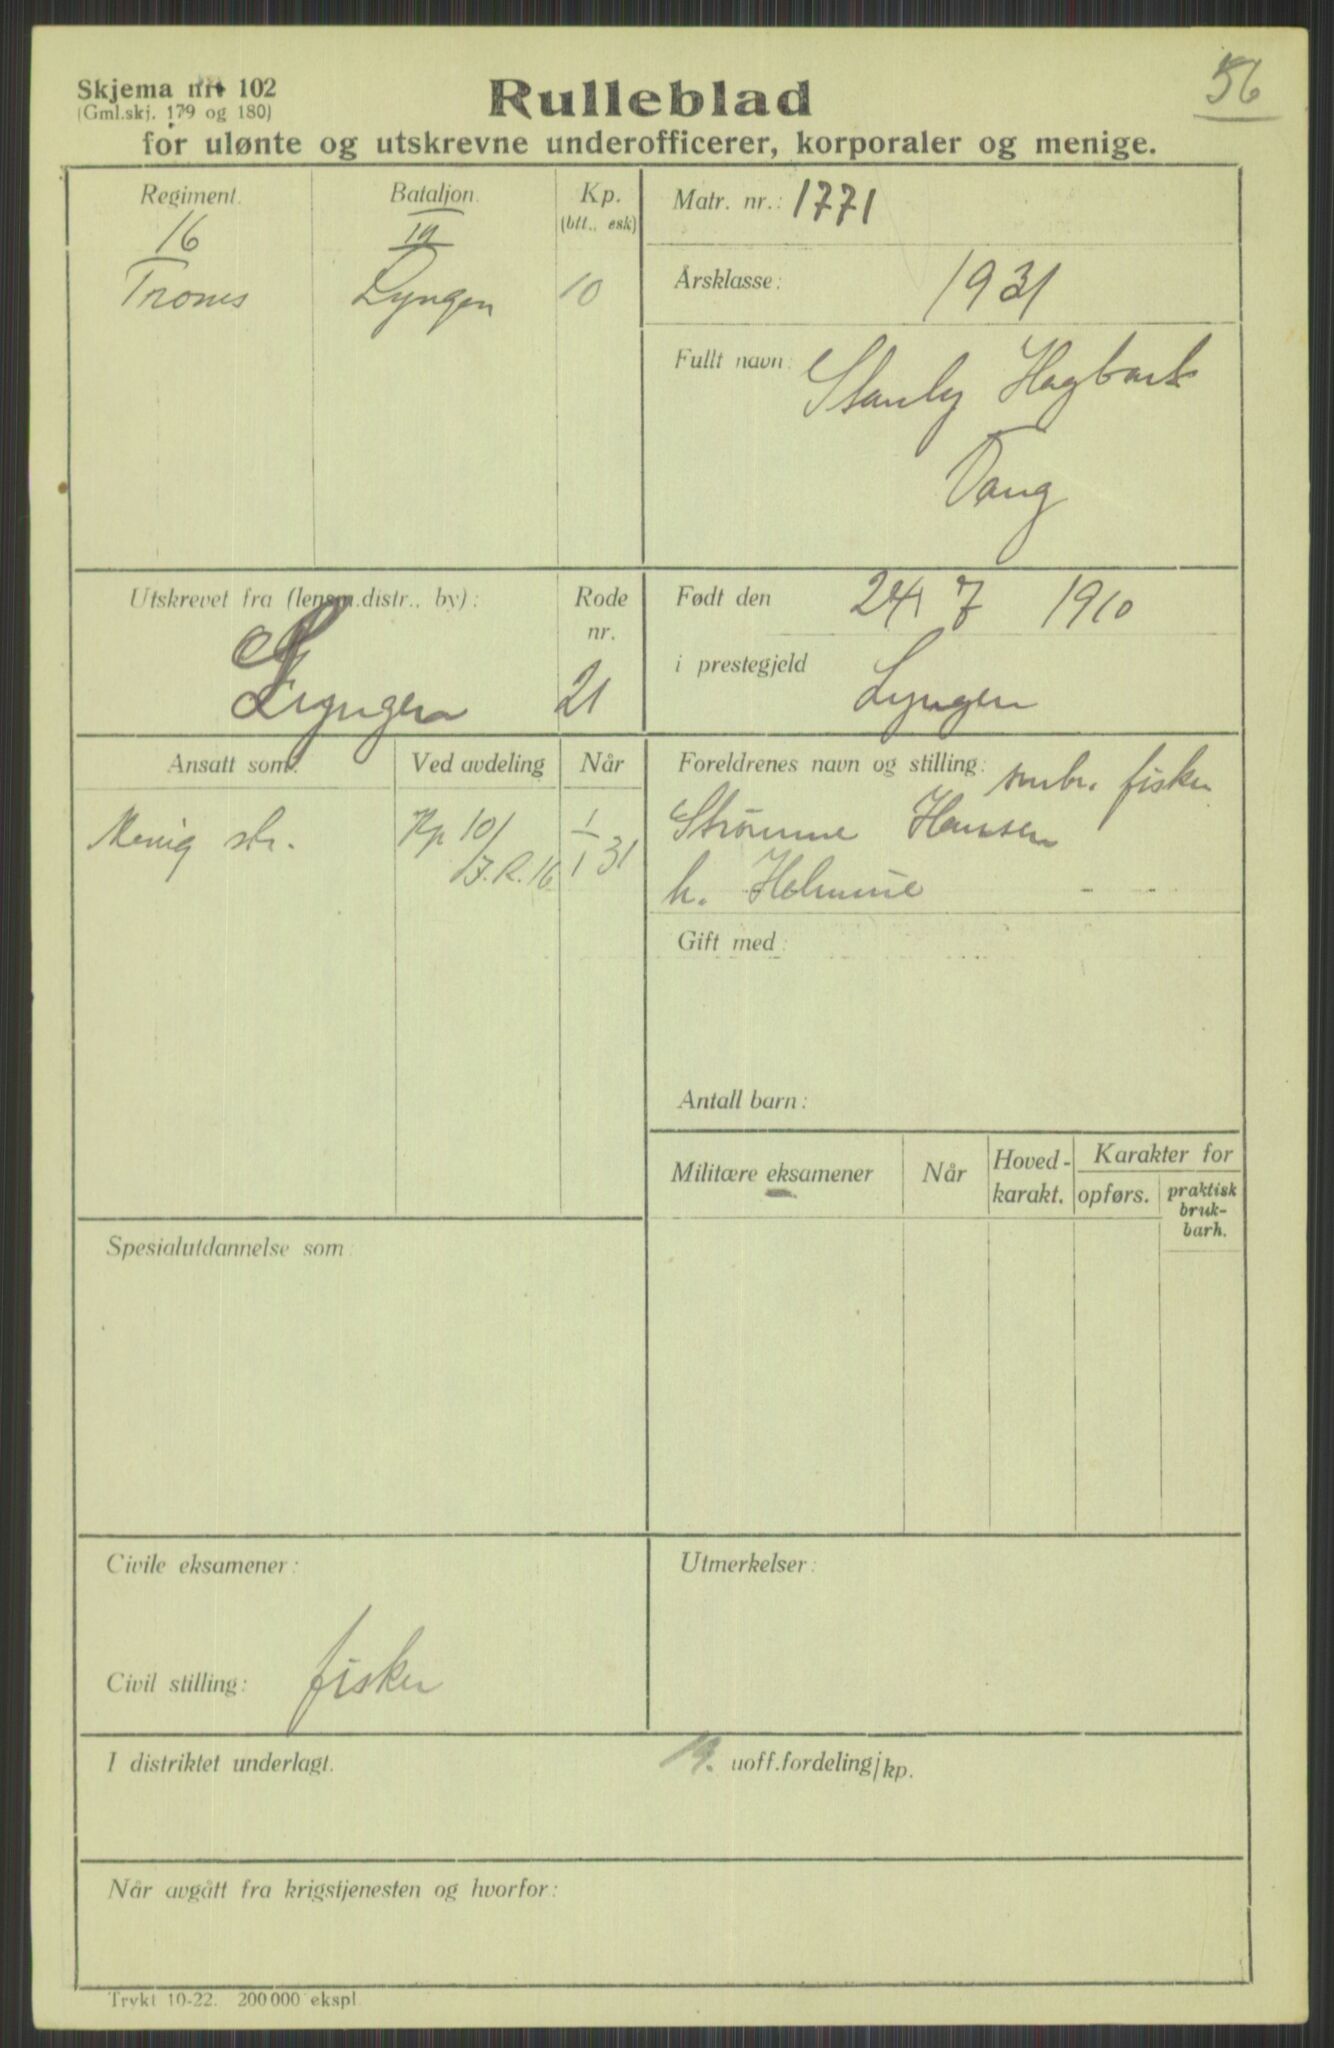 56
Skjema nr. 102
(Gml.skj. 179 og 180)
Rulleblad
for ulønte og utskrevne underofficerer, korporaler og menige.
Regiment.
Bataljon.
Kp.
(btt., esk)
16
Troms
Lyngen
10
Matr. nr.: 1771
Årsklasse: 1931
Fullt navn: Stanly Hagbart
Vang
Utskrevet fra (lensm.distr., by):
Rode
nr.
Lyngen
21
Født den 24 7 1910
i prestegjeld Lyngen
Ansatt som:
Ved avdeling
Når
Menig str.
Kp 10/
I.R. 16
1/1 31
Foreldrenes navn og stilling: smbr. fisker
Strømme Hansen
h. Helmine - -
Gift med:
Antall barn:
Militære eksamener
Når
Hoved-
karakt.
Karakter for
opførs.
praktisk
bruk-
barh.
Spesialutdannelse som:
Civile eksamener:
Civil stilling: fisker
Utmerkelser:
I distriktet underlagt.
19. uoff.fordeling/kp.
Når avgått fra krigstjenesten og hvorfor:
Trykt 10-22. 200 000 ekspl.